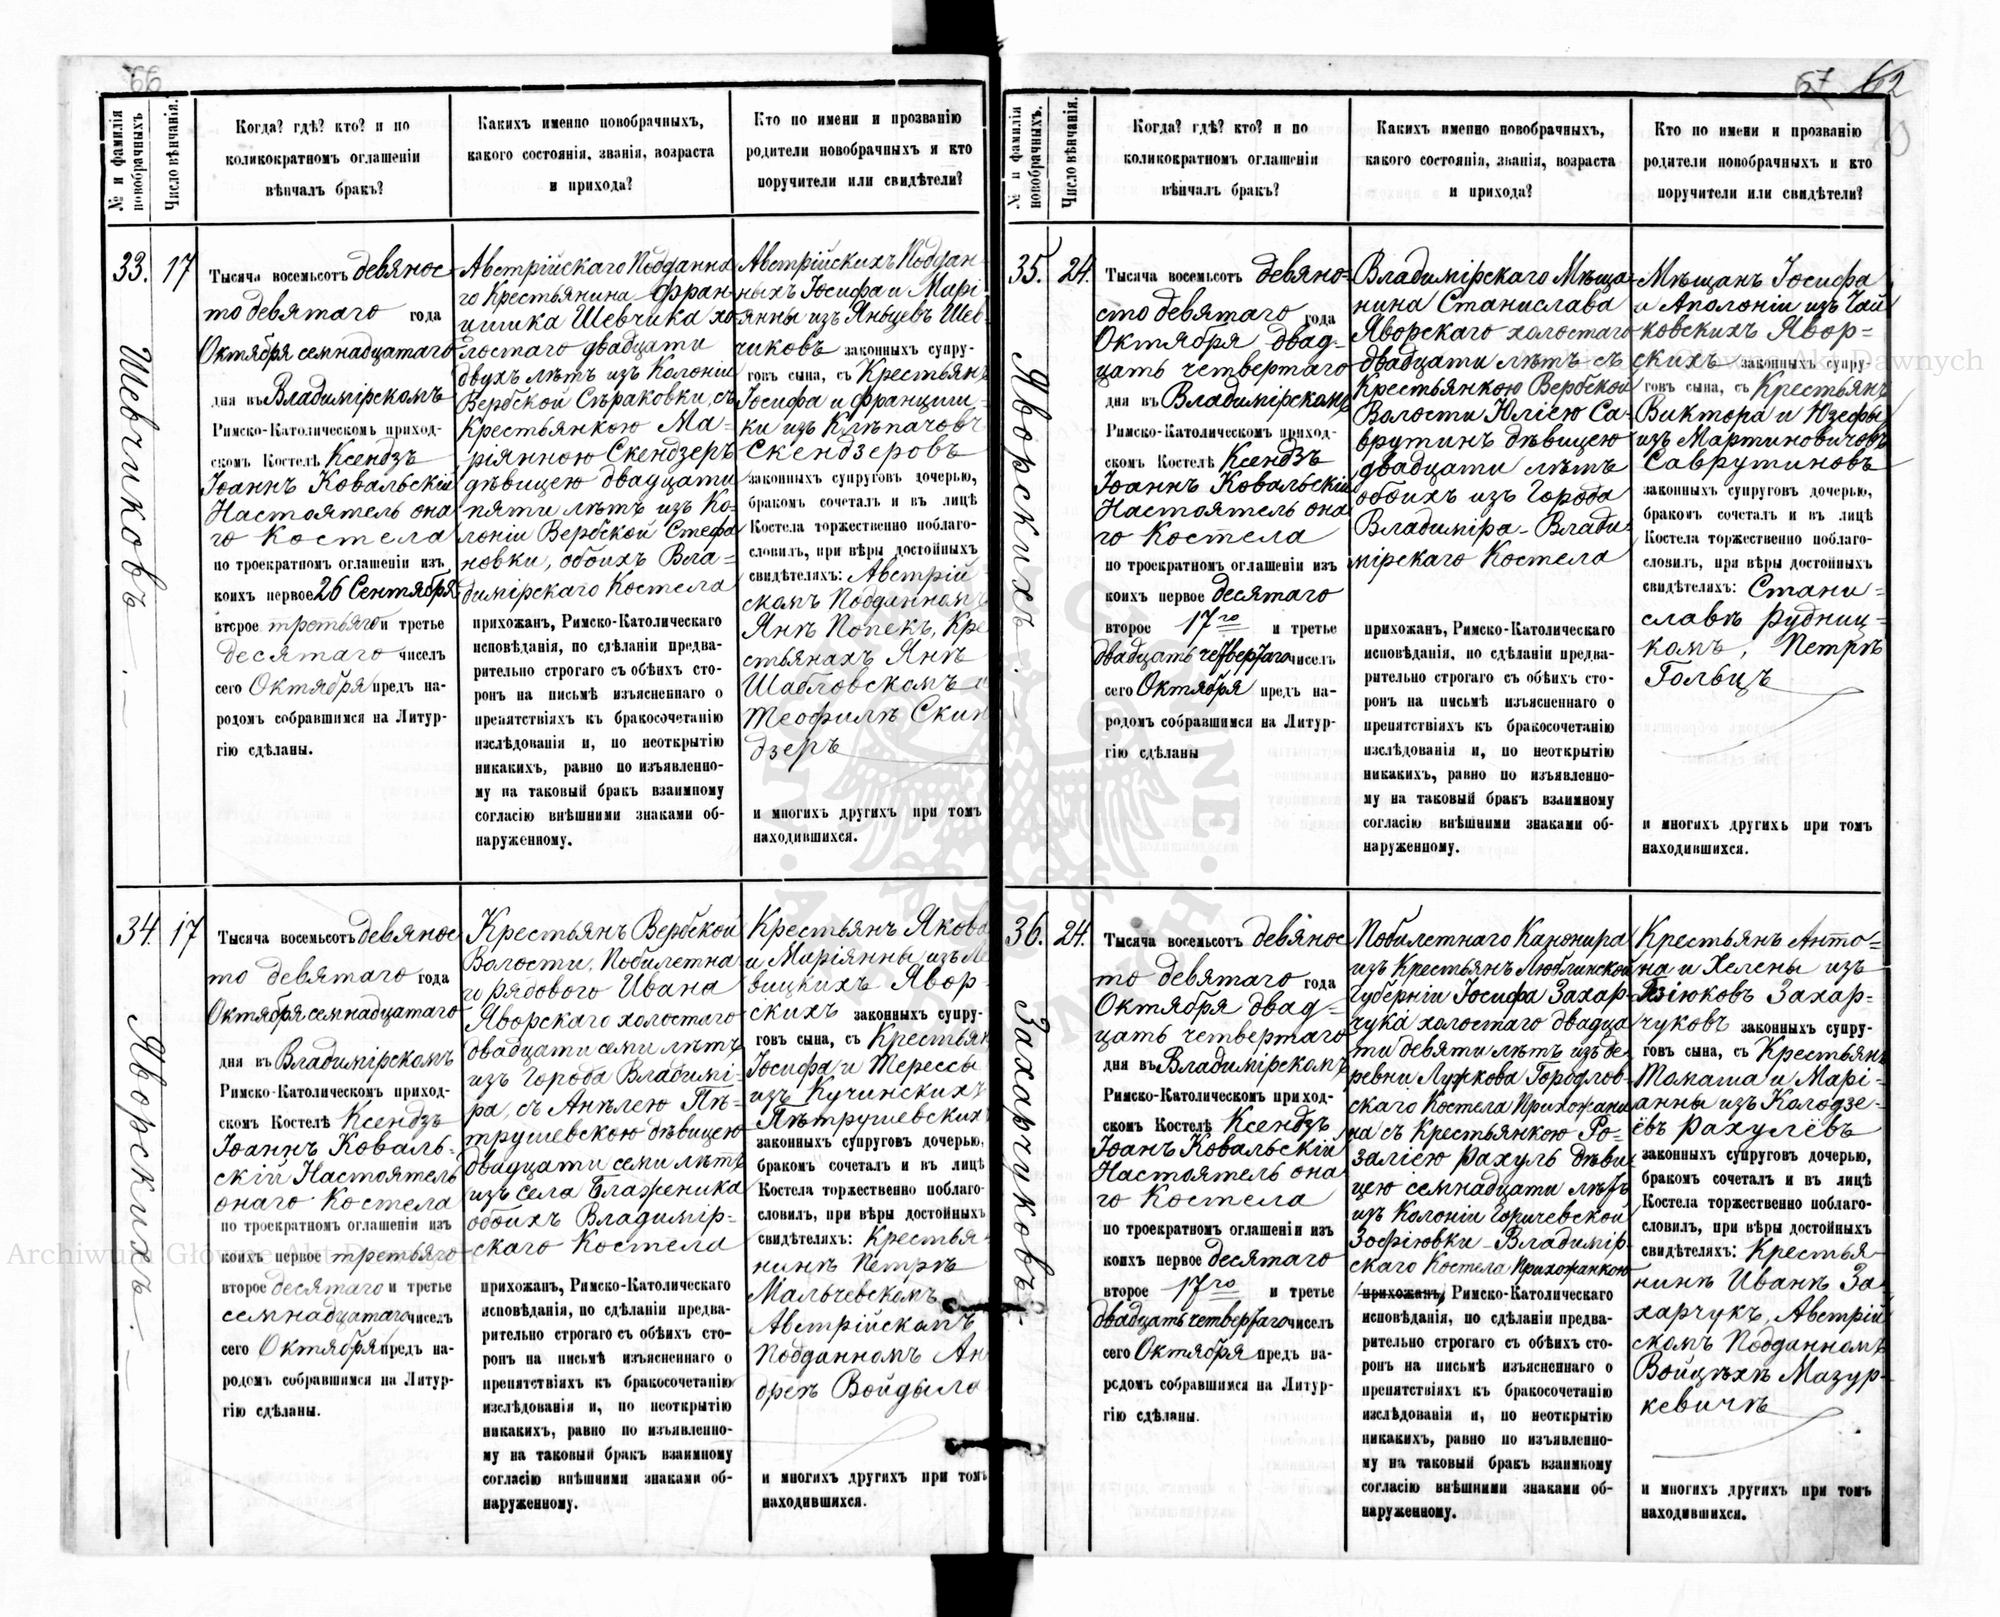 66
№ и фамилія новобрачныхъ
Число вѣнчанія.
Когда? гдѣ? кто? и по
коликократномъ оглашеніи
вѣнчалъ бракъ?
Какихъ именно новобрачныхъ,
какого состоянія, званія, возраста
и прихода?
Кто по имени и прозванію
родители новобрачныхъ и кто
поручители или свидѣтели?
33.
Шевчиковъ.
17
Тысяча восемьсотъ девянос-
то девятаго года
Октября семнадцатаго
дня въ Владимірскомъ
Римско-Католическомъ приход-
скомъ Костелѣ Ксендзъ
Іоаннъ Ковальскій
Настоятель она
го Костела
по троекратномъ оглашеніи изъ
коихъ первое 26 Сентября
второе третьяго и третье
десятаго чиселъ
сего Октября предъ на-
родомъ собравшимся на Литур-
гію сдѣланы.
Австрійскаго Подданна
го Крестьянина Фран-
цишка Шевчика хо
лостаго двадцати
двухъ лѣтъ изъ Колоніи
Вербской Сѣраковки, съ
Крестьянкою Ма-
ріянною Скендзеръ
дѣвицею двадцати
пяти лѣтъ изъ Ко-
лоніи Вербской Стефа
новки, обоихъ Вла-
димірскаго Костела
прихожан, Римско-Католическаго
исповѣданія, по сдѣланіи предва-
рительно строгаго съ обѣихъ сто-
ронъ на письмѣ изъясненнаго о
препятствіяхъ къ бракосочетанію
изслѣдованія и, по неоткрытію
никакихъ, равно по изъявленно-
му на таковый бракъ взаимному
согласію внѣшними знаками об-
наруженному.
Австрійскихъ Поддан-
ныхъ Іосифа и Марі
янны изъ Яньцевъ Шев-
чиковъ законныхъ супру-
говъ сына, съ Крестьянъ
Іосифа и Францишь-
ки изъ Клѣпачовъ
Скендзеровъ
законныхъ супруговъ дочерью,
бракомъ сочеталъ и въ лицѣ
Костела торжественно поблаго-
словилъ, при вѣры достойныхъ
свидѣтеляхъ: Австрій
скомъ Подданномъ
Янѣ Попекъ, Кре
стьянахъ Янѣ
Шабловскомъ и
Теофилѣ Скин
дзеръ
и многихъ другихъ при томъ
находившихся.
34.
Яворскихъ.
17
Тысяча восемьсотъ девянос-
то девятаго года
Октября семнадцатаго
дня въ Владимірскомъ
Римско-Католическомъ приход-
скомъ Костелѣ Ксендзъ
Іоаннъ Коваль-
скій Настоятель
онаго Костела
по троекратномъ оглашеніи изъ
коихъ первое третьяго
второе десятаго и третье
семнадцатаго чиселъ
сего Октября предъ на-
родомъ собравшимся на Литур-
гію сдѣланы.
Крестьянъ Вербской
Волости, Побилетна
го рядового Ивана
Яворскаго холостаго
двадцати семи лѣтъ
изъ Города Владимі-
ра, съ Анѣлею Пѣ-
трушевскою дѣвицею
двадцати семи лѣтъ
изъ села Блаженика
обоихъ Владимір-
скаго Костела
прихожан, Римско-Католическаго
исповѣданія, по сдѣланіи предва-
рительно строгаго съ обѣихъ сто-
ронъ на письмѣ изъясненнаго о
препятствіяхъ къ бракосочетанію
изслѣдованія и, по неоткрытію
никакихъ, равно по изъявленно-
му на таковый бракъ взаимному
согласію внѣшними знаками об-
наруженному.
Крестьянъ Якова
и Маріянны изъ Ле
вицкихъ Явор-
скихъ законныхъ супру-
говъ сына, съ Крестьян
Іосифа и Терессы
изъ Кучинскихъ
Пѣтрушевскихъ
законныхъ супруговъ дочерью,
бракомъ сочеталъ и въ лицѣ
Костела торжественно поблаго-
словилъ, при вѣры достойныхъ
свидѣтеляхъ: Крестья-
нинѣ Петрѣ
Мальчевскомъ
Австрійскомъ
Подданномъ Ан
дреѣ Войдыло
и многихъ другихъ при томъ
находившихся.
67 62
№ и фамилія новобрачныхъ.
Число вѣнчанія.
Когда? гдѣ? кто? и по
коликократномъ оглашеніи
вѣнчалъ бракъ?
Какихъ именно новобрачныхъ,
какого состоянія, званія, возраста
и прихода?
Кто по имени и прозванію
родители новобрачныхъ и кто
поручители или свидѣтели?
35.
Яворскихъ.
24.
Тысяча восемьсотъ девяно-
сто девятаго года
Октября двад-
цать четвертаго
дня въ Владимірскомъ
Римско-Католическомъ приход-
скомъ Костелѣ Ксендзъ
Іоаннъ Ковальскій
Настоятель она
го Костела
по троекратномъ оглашеніи изъ
коихъ первое десятаго
второе 17го и третье
двадцать четвертаго чиселъ
сего Октября предъ на-
родомъ собравшимся на Литур-
гію сдѣланы
Владимірскаго Мѣща-
нина Станислава
Яворскаго холостаго
двадцати лѣтъ съ
Крестьянкою Вербской
Волости Юліею Са-
врутинъ дѣвицею
двадцати лѣтъ
обоихъ изъ Города
Владиміра-Влади
мірскаго Костела
прихожан, Римско-Католическаго
исповѣданія, по сдѣланіи предва-
рительно строгаго съ обѣихъ сто-
ронъ на письмѣ изъясненнаго о
препятствіяхъ къ бракосочетанію
изслѣдованія и, по неоткрытію
никакихъ, равно по изъявленно-
му на таковый бракъ взаимному
согласію внѣшними знаками об-
наруженному.
Мѣщанъ Іосифа
и Аполоніи изъ Чай
ковскихъ Явор-
скихъ законныхъ супру-
говъ сына, съ Крестьянъ
Виктора и Юзефы
изъ Мартиновичовъ
Саврутиновъ
законныхъ супруговъ дочерью,
бракомъ сочеталъ и въ лицѣ
Костела торжественно поблаго-
словилъ, при вѣры достойныхъ
свидѣтеляхъ: Стани-
славѣ Рудниц-
комъ, Петрѣ
Гольцъ
и многихъ другихъ при томъ
находившихся.
36.
Захарчуковъ.
24.
Тысяча восемьсотъ девянос-
то девятаго года
Октября двад-
цать четвертаго
дня въ Владимірскомъ
Римско-Католическомъ приход-
скомъ Костелѣ Ксендзъ
Іоанъ Ковальскій
Настоятель она
го Костела
по троекратномъ оглашеніи изъ
коихъ первое десятаго
второе 17го и третье
двадцать четвертаго чиселъ
сего Октября предъ на-
родомъ собравшимся на Литур-
гію сдѣланы.
Побилетнаго Канонира
изъ Крестьянъ Люблинской
Губерніи Іосифа Захар-
чука холостаго двадца
ти девяти лѣтъ изъ де-
ревни Лужкова Городлов-
скаго Костела Прихожани
на съ Крестьянкою Ро-
заліею Рахуль дѣви-
цею семнадцати лѣтъ
изъ Колоніи Горичевской
Зофіювки-Владимір-
скаго Костела Прихожанкою
прихожан, Римско-Католическаго
исповѣданія, по сдѣланіи предва-
рительно строгаго съ обѣихъ сто-
ронъ на письмѣ изъясненнаго о
препятствіяхъ къ бракосочетанію
изслѣдованія и, по неоткрытію
никакихъ, равно по изъявленно-
му на таковый бракъ взаимному
согласію внѣшними знаками об-
наруженному.
Крестьянъ Анто-
на и Хелены изъ
Захар-
чуковъ законныхъ супру-
говъ сына, съ Крестьянъ
Томаша и Марі-
анны изъ Колодзе-
ёвъ Рахулёвъ
законныхъ супруговъ дочерью,
бракомъ сочеталъ и въ лицѣ
Костела торжественно поблаго-
словилъ, при вѣры достойныхъ
свидѣтеляхъ: Крестья-
нинѣ Иванѣ За
харчукъ, Австрій
скомъ Подданномъ
Войцѣхѣ Мазур-
кевичѣ
и многихъ другихъ при томъ
находившихся.
Archiwum Główne Akt Dawnych